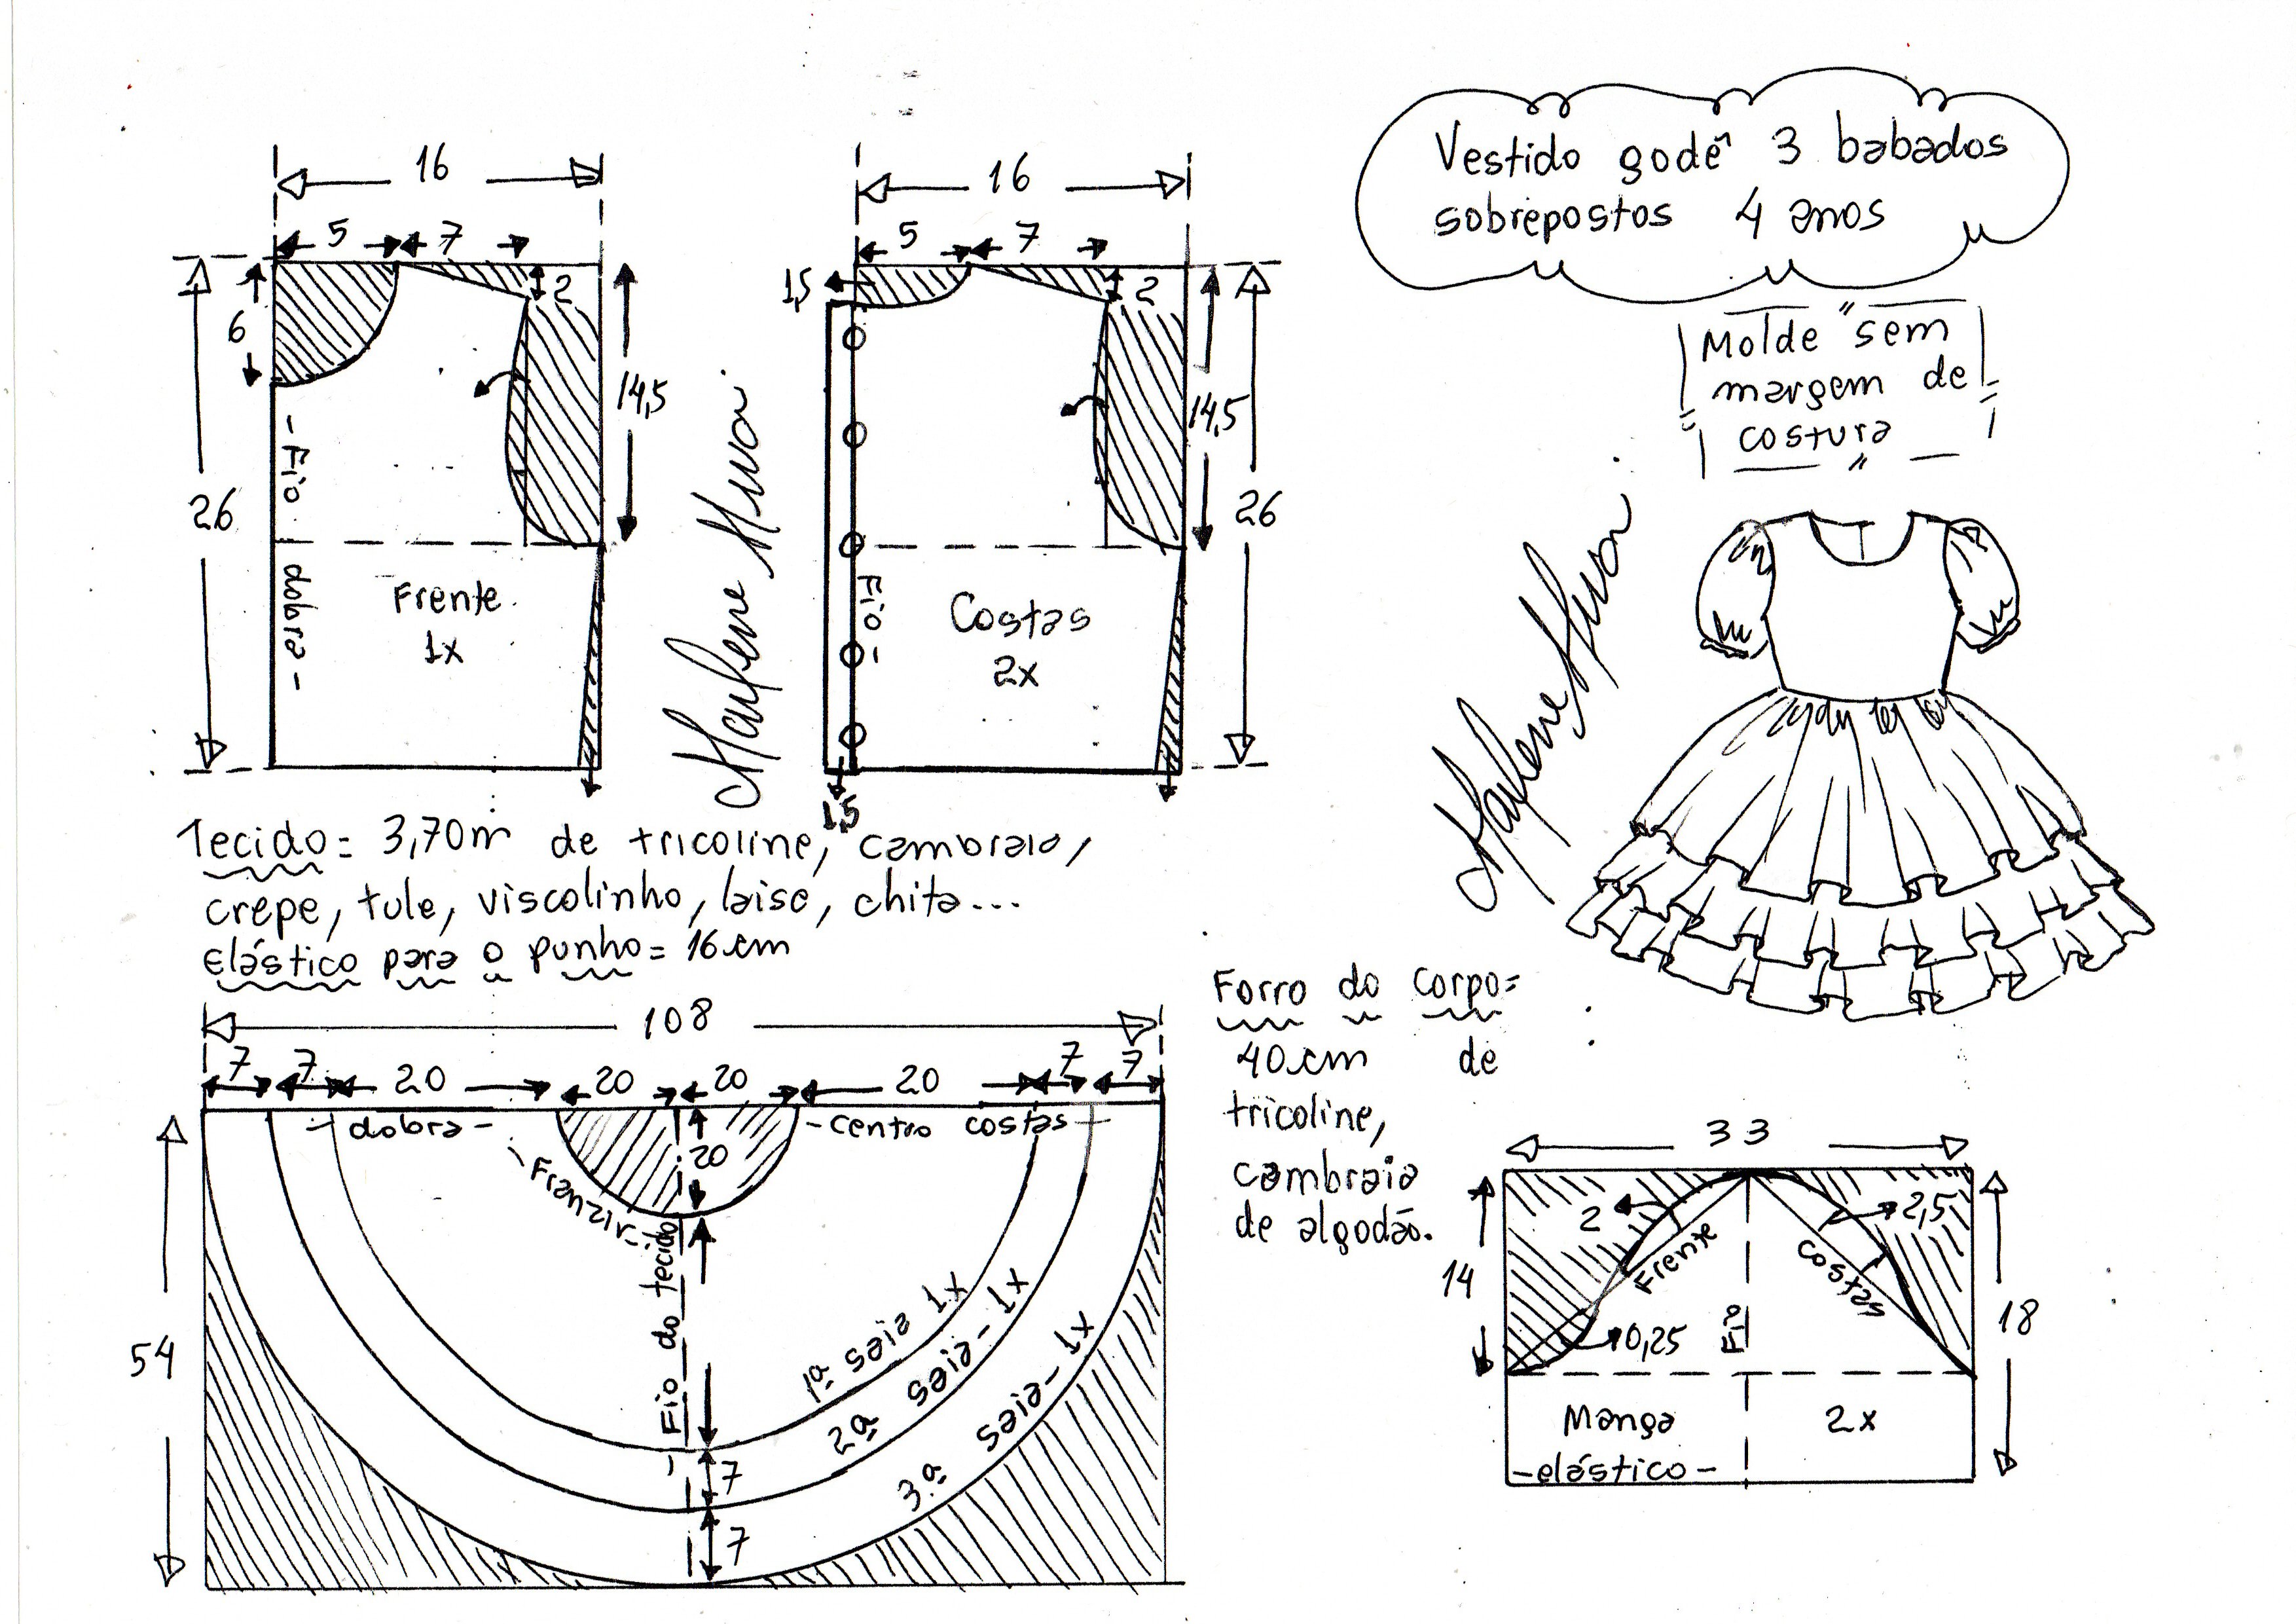 Vestido godê 3 babados
sobrepostos 4 anos
Molde "sem
margem de
costura"
16
5 7
2
6
14,5
26
-Fio dobra-
Frente
1x
Marlene Mukai
16
5 7
1,5
2
14,5
26
Fio-
Costas
2x
1,5
Marlene Mukai
Tecido= 3,70m de tricoline, cambraia,
crepe, tule, viscolinho, laise, chita...
elástico para o punho= 16cm
108
7 7 20 20 20 20 7 7
-dobra- -centro costas-
20
-Franzir-
-Fio do tecido
54
1ª saia 1x
2ª saia-1x
3ª saia-1x
7
7
Forro do corpo=
40cm de
tricoline,
cambraia
de algodão.
33
2 2,5
Frente
costas
14
0,25
Fio
18
Manga 2x
-elástico-